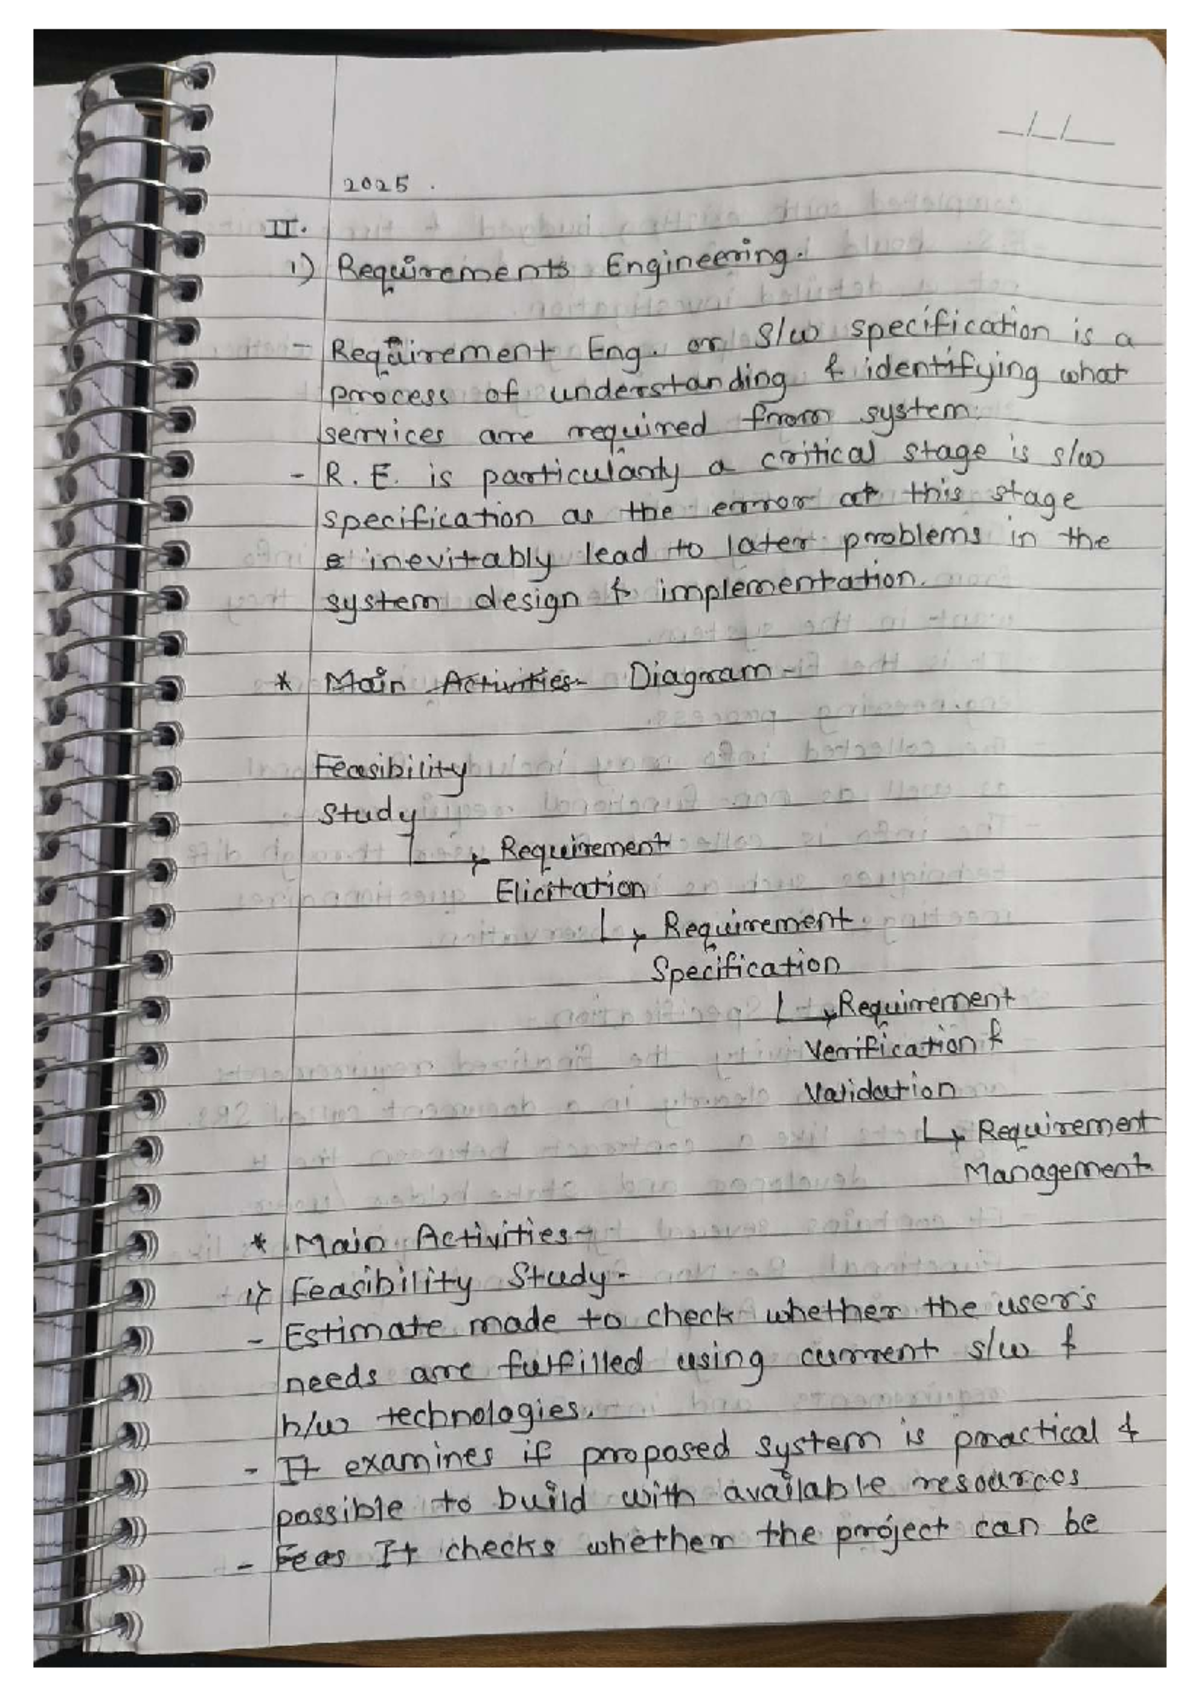 _/_/_
2025.
II.
1) Requirements Engineering.
- Requirement Eng. or s/w specification is a
process of understanding & identifying what
services are required from system.
- R.E. is particularly a critical stage is s/w
specification as the error at this stage
inevitably lead to later problems in the
system design & implementation.
* Main Activities- Diagram -
Feasibility
Study
Requirement
Elicitation
Requirement
Specification
Requirement
Verification &
Validation
Requirement
Management
* Main Activities-
1) Feasibility Study-
- Estimate made to check whether the user's
needs are fulfilled using current s/w &
h/w technologies.
- It examines if proposed system is practical &
possible to build with available resources
- Feas It checks whether the project can be